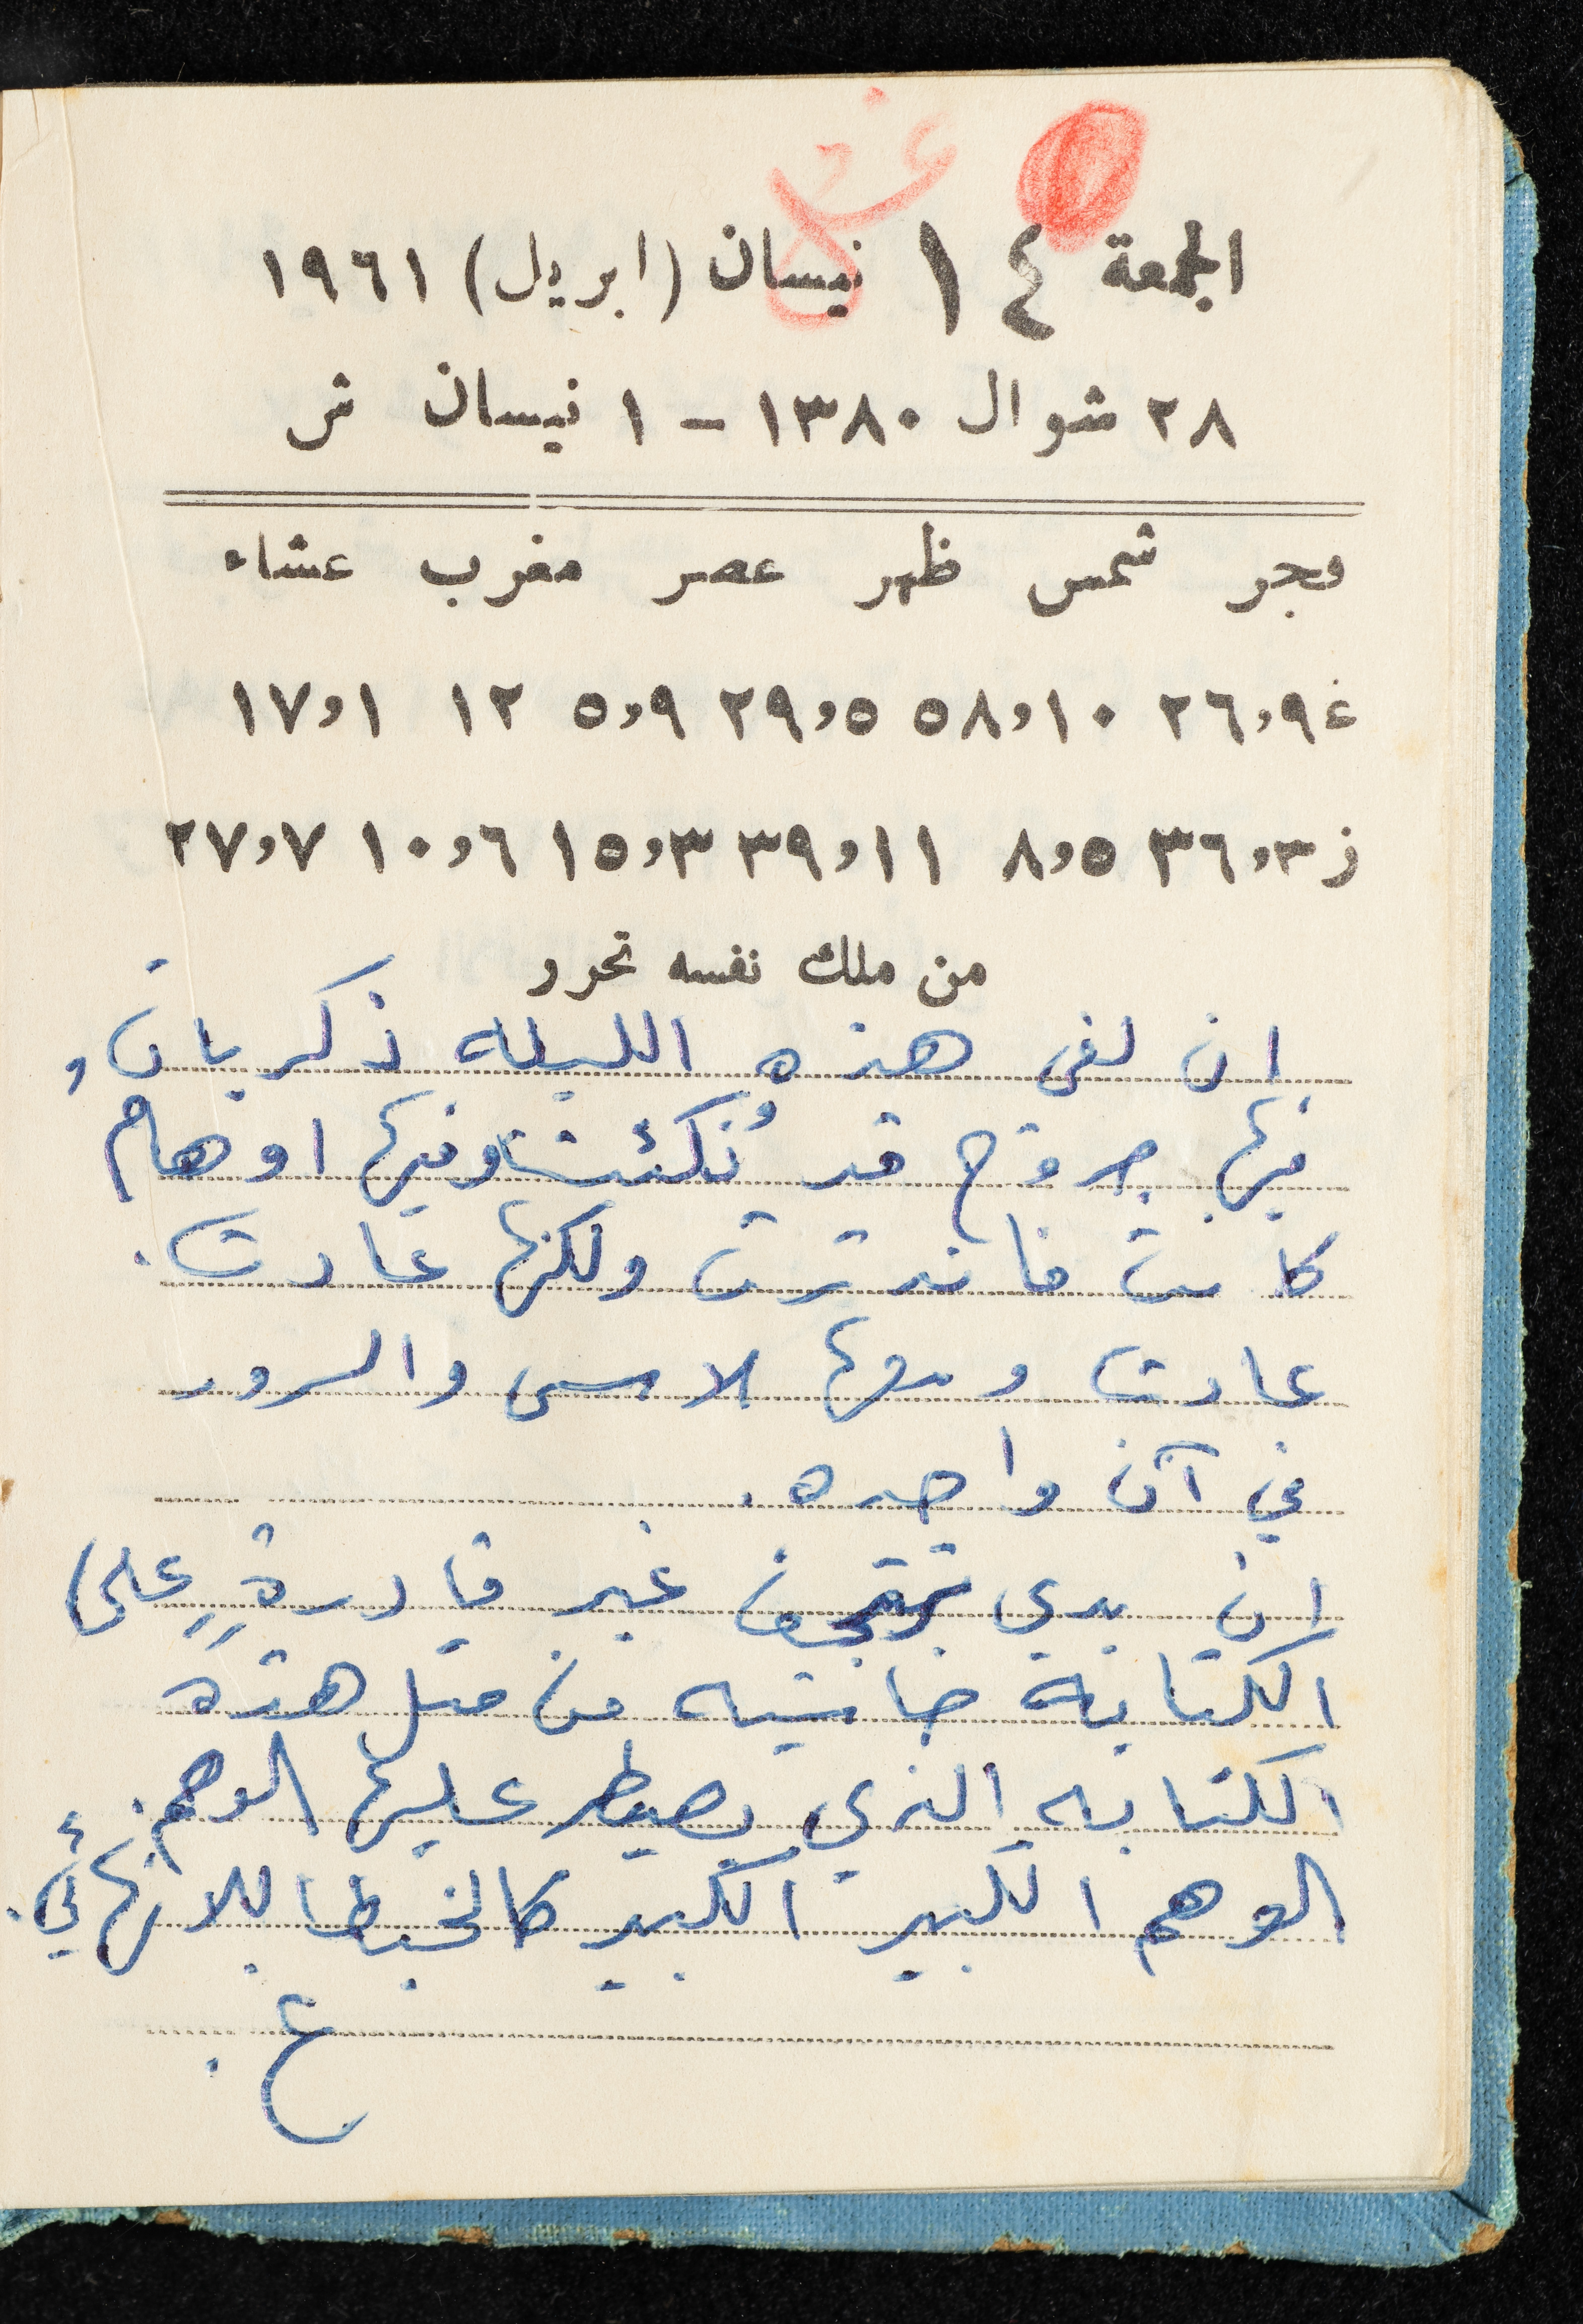 الجمعة ١٤ نيسان (ابريل) ١٩٦١
٢٨ شوال ١٣٨٠ - ١ نيسان ش
فجر شمس ظهر عصر مغرب عشاء
غ ٢٦,٩ ٥٨,١٠ ٢٩,٥ ٥,٩ ١٢ ١٧,١
ز ٣٦,٣ ٨,٥ ٣٩,١١ ١٥,٣ ١٠,٦ ٢٧,٧
من ملك نفسه تحرر
ان لفى هذه الليله ذكريات,
فيها جروح قد نُكئت وفيها اوهام
كانت فاندثرت ولكنها عادت.
عادت ومعها الاسى والسرور
في آن واحده.
ان يدي ترتجفان غير قادرةٍ على
الكتابة خاصتيه من مثل هذه
الكتابه الذي يصيطر عليها الوهم.
الوهم الكبير الكبير كالخيط اللانهائي.
ع.